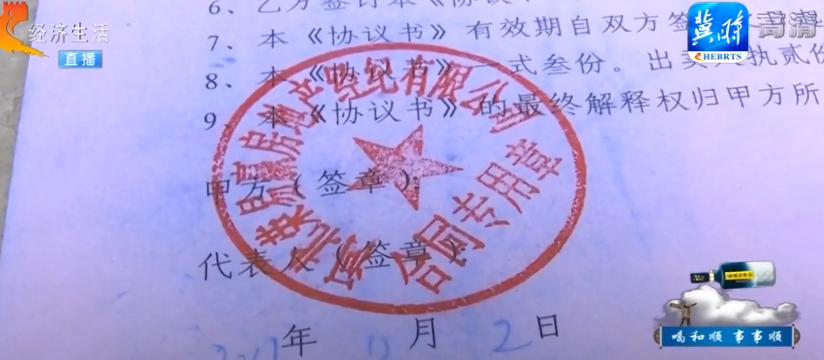 经济生活
直播
冀时
CHEBRTS
高清
6、乙方签订本《协议
7、本《协议书》有效期自双方签
8、本《协议书》一式叁份。出卖人执贰份
9、本《协议书》的最终解释权归甲方所
房地产经纪有限公司
合同专用章
甲方（签章）：
代表人（签章）：
年 月 2 日
喝和顺 事事顺